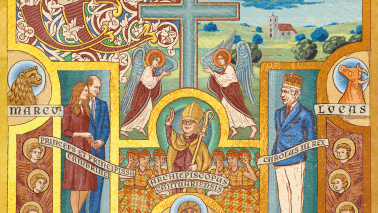 MARCVS
LVCAS
PRINCEPS ET PRINCIPISSA
CAMBRIAE
ARCHIEPISCOPUS
CANTUARIENSIS
CAROLUS III REX